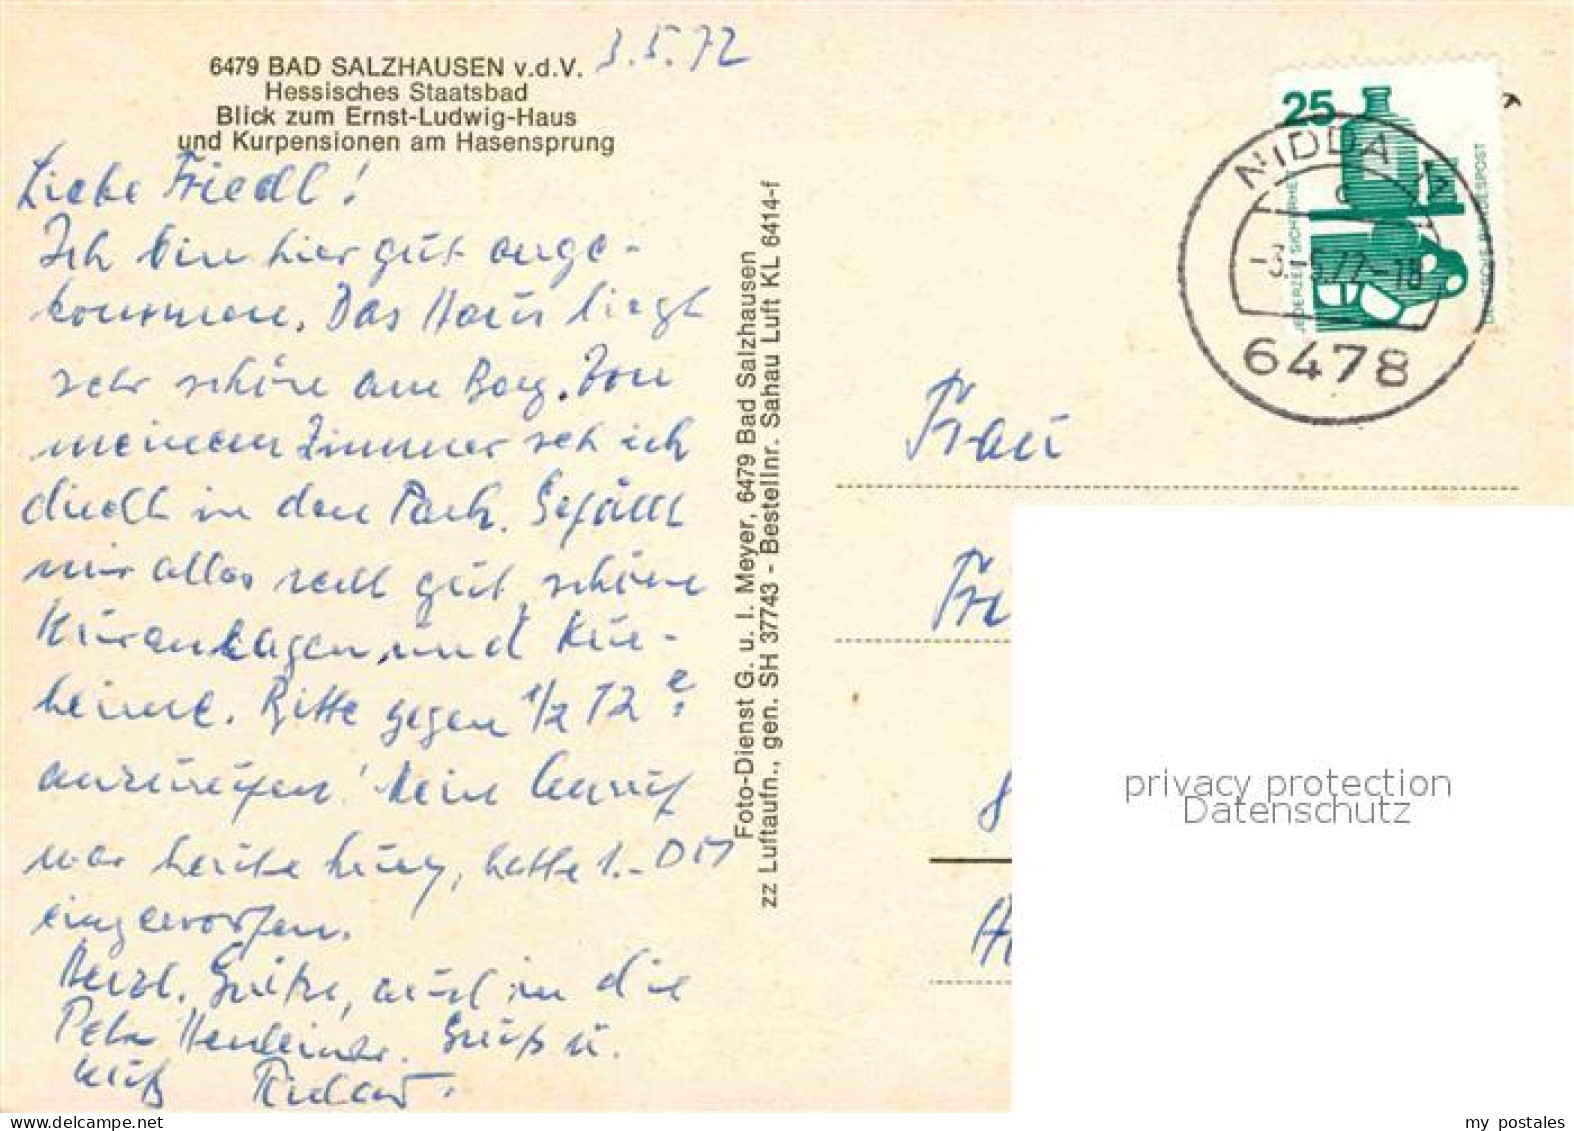 6479 BAD SALZHAUSEN v.d.V.
3.5.72
Hessisches Staatsbad
Blick zum Ernst-Ludwig-Haus
und Kurpensionen am Hasensprung
Liebe Friedl!
Ich bin hier gut ange-
kommen. Das Haus liegt
sehr schön am Berg. Von
meinem Zimmer seh ich
direkt in den Park. Gefällt
mir alles recht gut, schöne
Kuranlagen und Kur-
heime. Bitte gegen 1/2 12
anzurufen! Mein Anruf
war heute kurz, hatte 1.- DM
eingeworfen.
Herzl. Grüße, auch in die
Gruß u.
Kuß
Foto-Dienst G. u. I. Meyer, 6479 Bad Salzhausen
zz Luftaufn., gen. SH 37743 - Bestellnr. Sahau Luft KL 6414-f
25
JEDERZEIT SICHERHEIT
DEUTSCHE BUNDESPOST
NIDDA
6478
Frau
privacy protection
Datenschutz
my postales